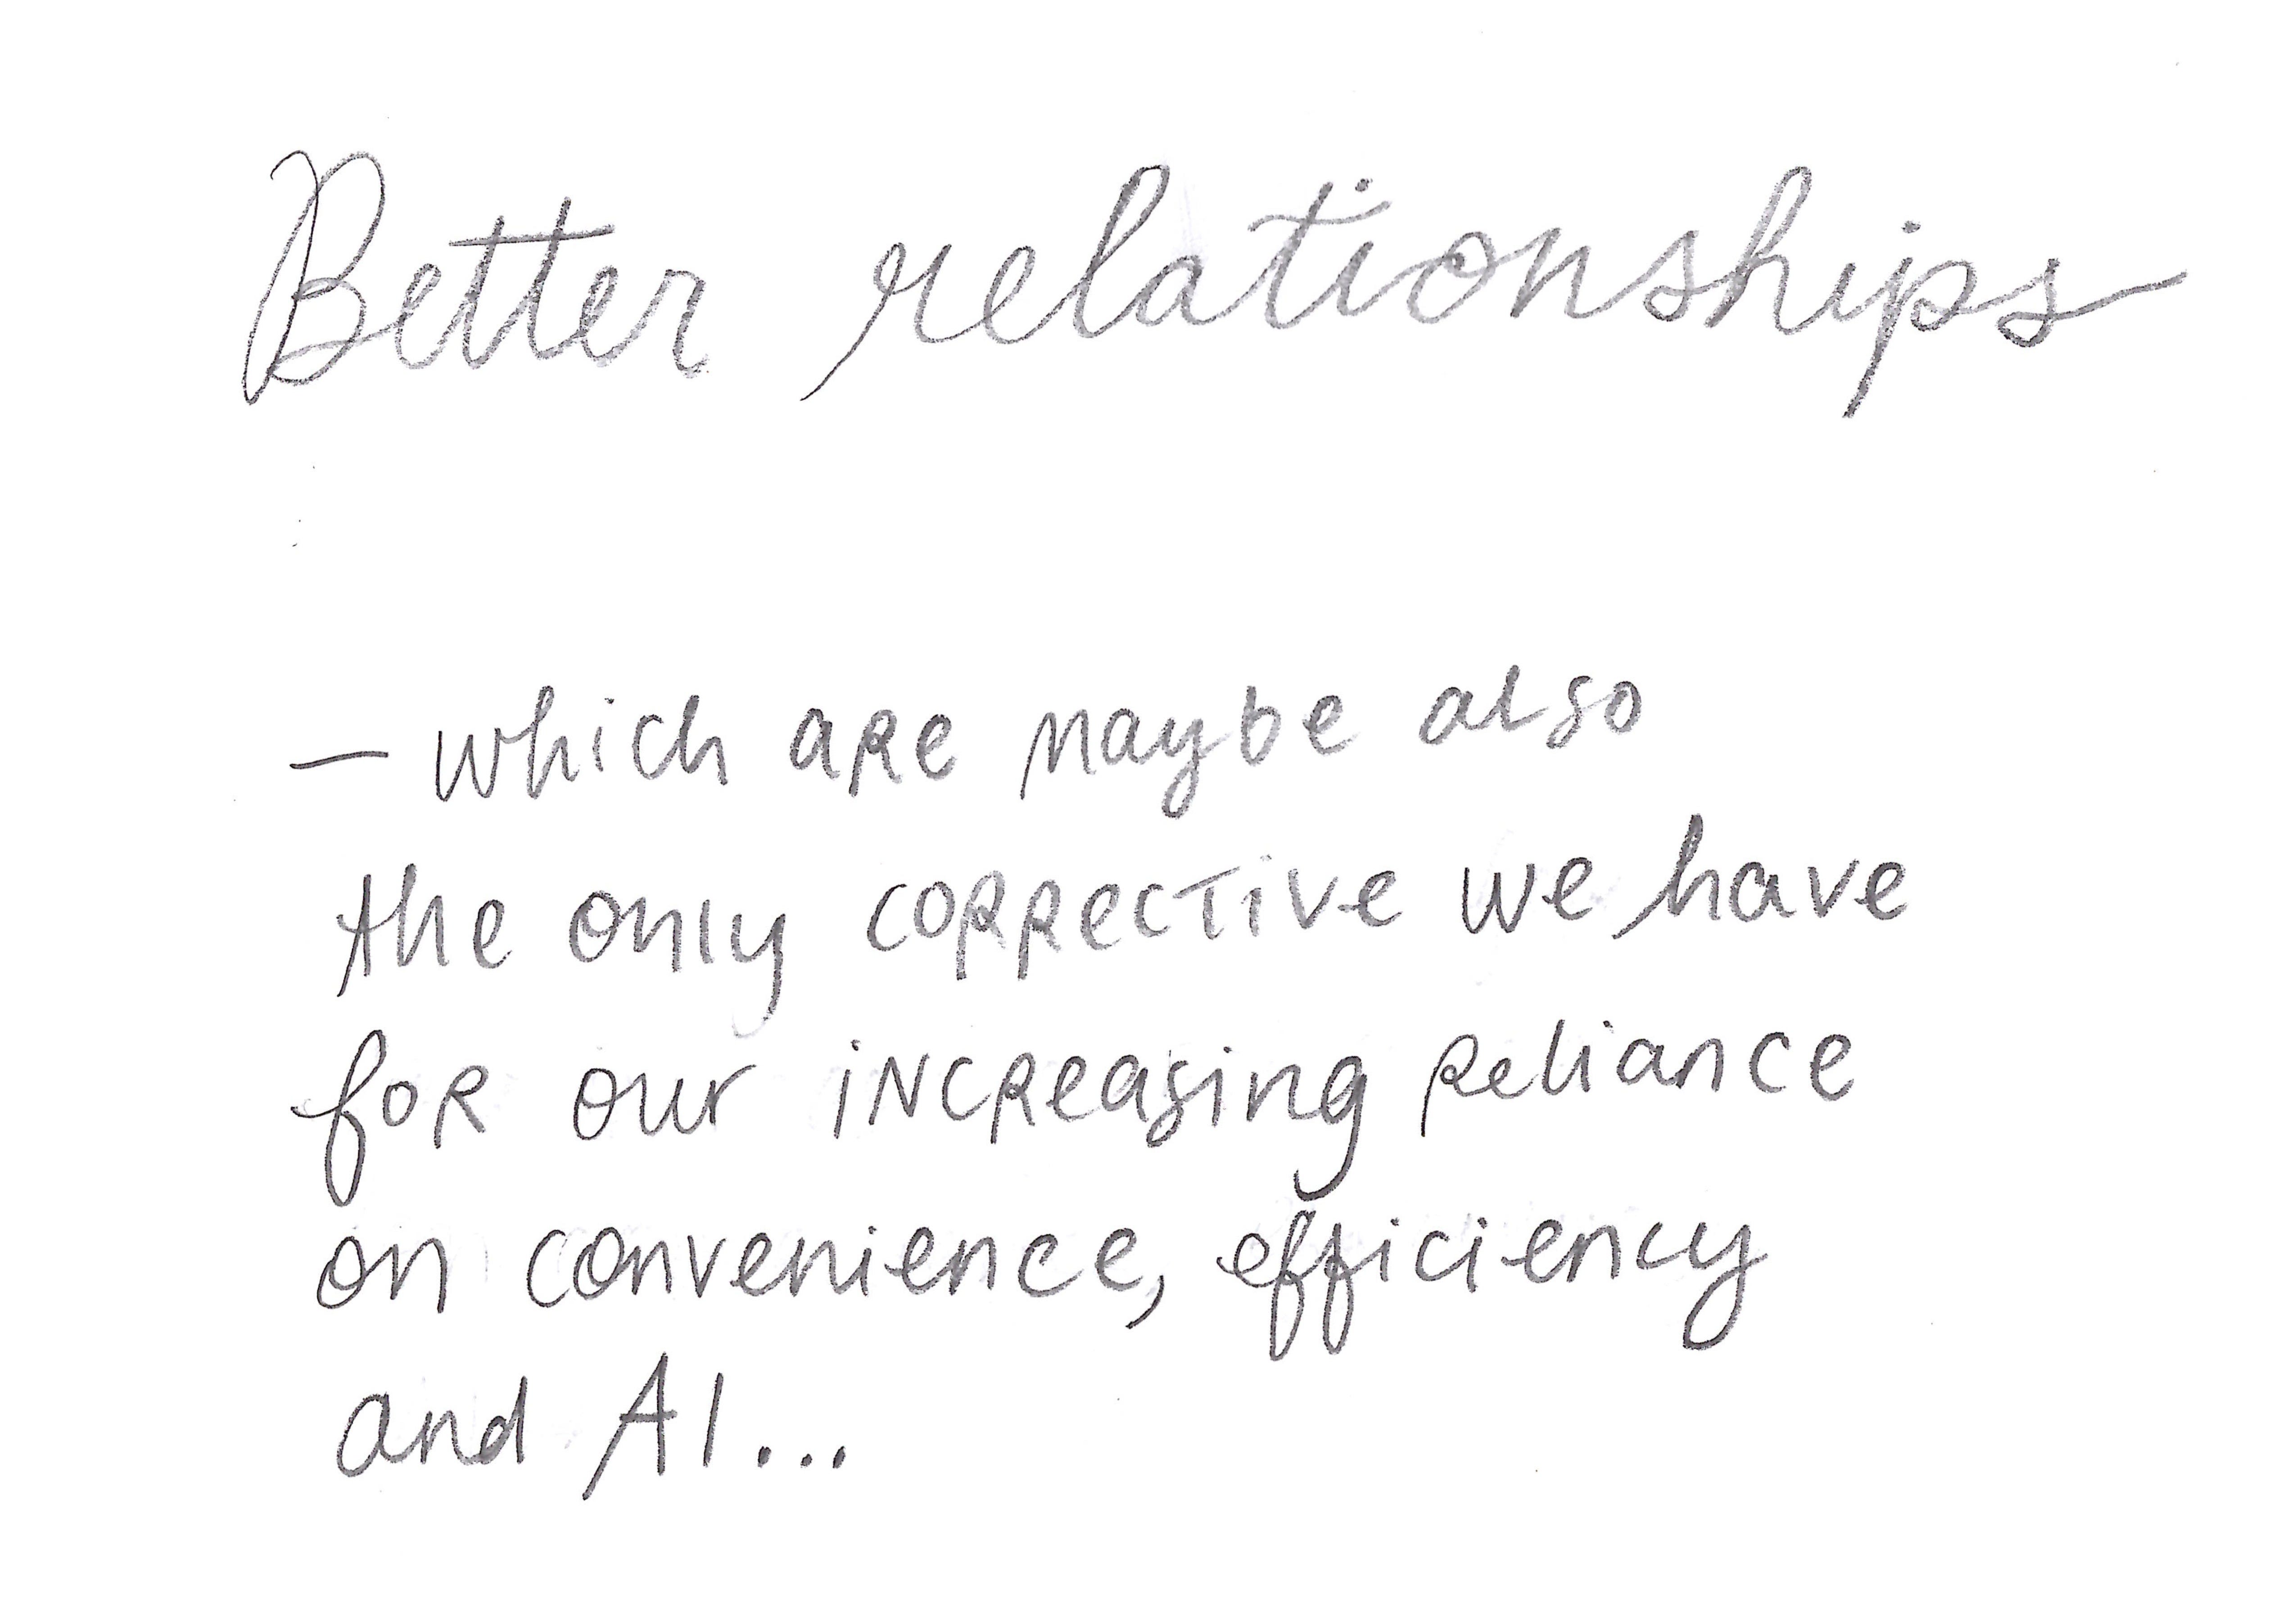 Better relationships
— which are maybe also
the only corrective we have
for our increasing reliance
on convenience, efficiency
and AI...